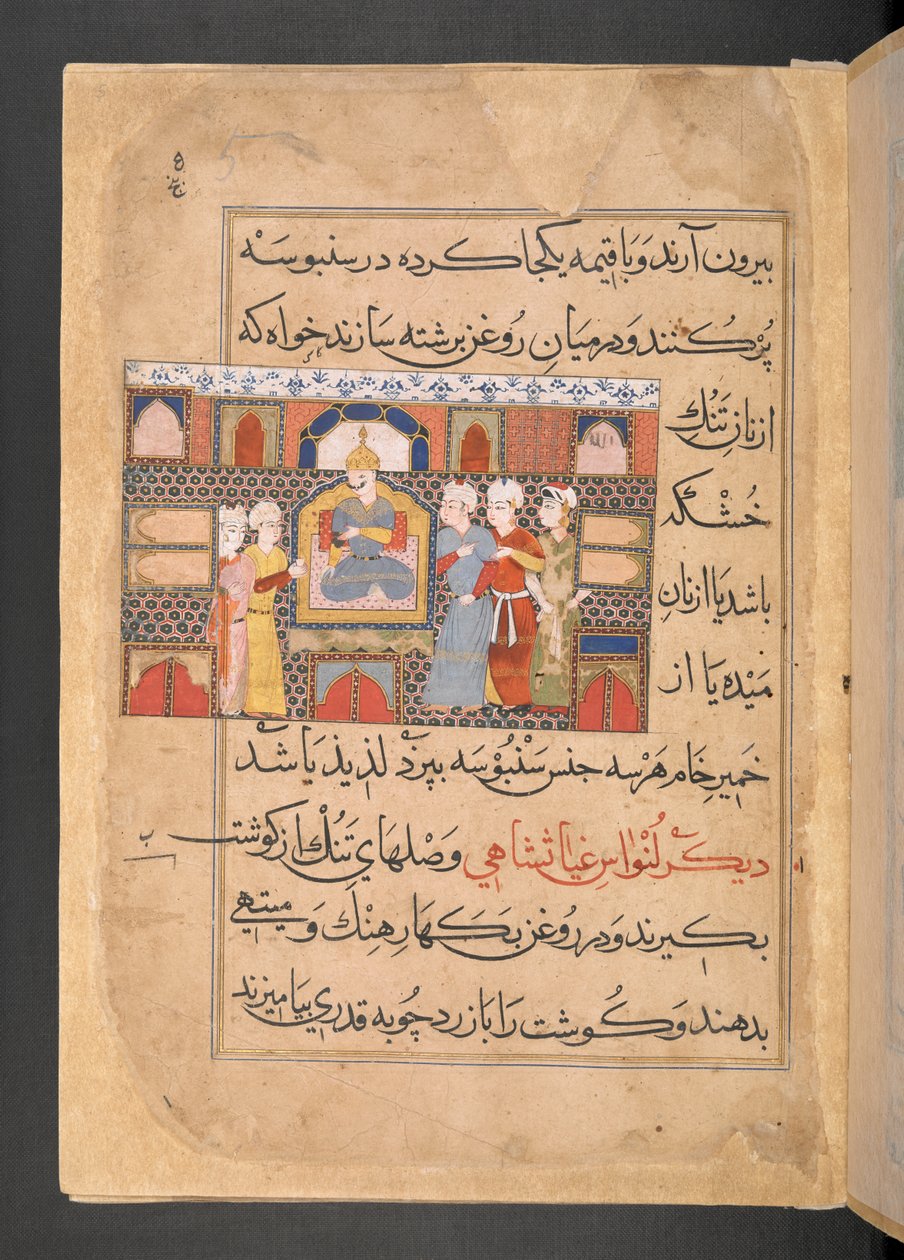 بیرون آرند وَ بَا قیمه یکجا کرده در سنبوسَه
پُرکُنند وَ درمیانِ رُوغن برشته سَازند خواه که
از نانِ تَنُك
خُشْکه
باشد یا از نانِ
مَیْده یَا از
خمیرِ خَام هَرْسه جنس سَنْبُوْسَه بپزد لذیذ بَاشد
دیکَر لُنْواسِ غیاثشاهي وَصْلهَايِ تَنُكْ از کوشت
بکیرند وَ در رُوغن بَکهارِ هِنْك وَ میتهي
بدهند وَ کوشت رَا با زردچُوبه قدري بیامیزند